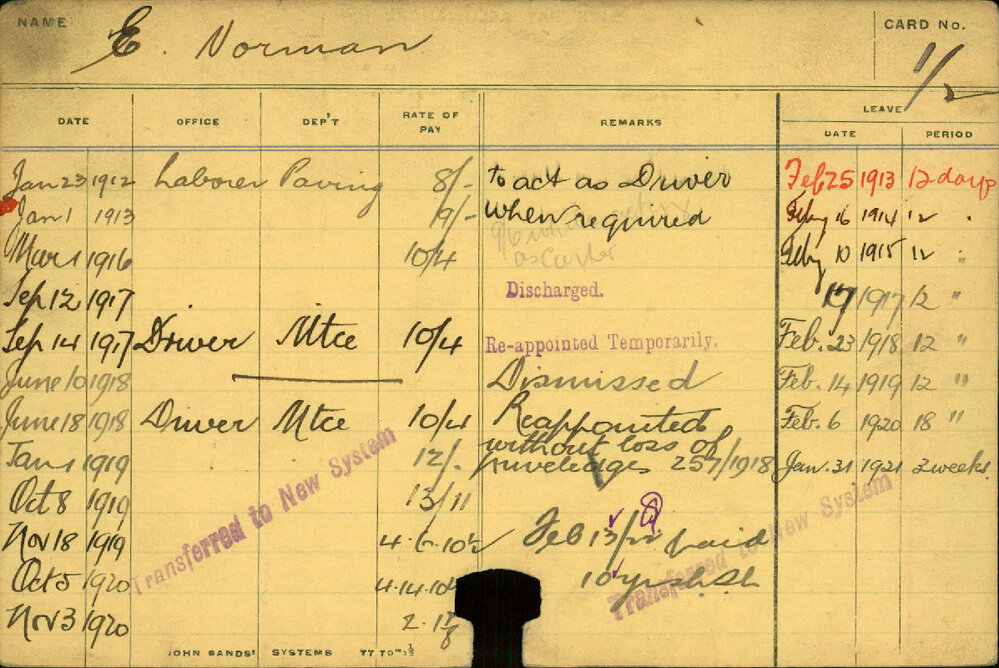 NAME E. Norman CARD No. 1/2
DATE OFFICE DEP'T RATE OF PAY REMARKS LEAVE
DATE PERIOD
Jan 23 1912 Laborer Paving 8/- to act as Driver Feb 25 1913 12 days
Jan 1 1913 9/- when required Feby 16 1914 12 "
Mar 1 1916 10/4 as Carter Feby 10 1915 12 "
Sep 12 1917 Discharged. 17 1917 12 "
Sep 14 1917 Driver Mtce 10/4 Re-appointed Temporarily. Feb. 23 1918 12 "
June 10 1918 Dismissed Feb. 14 1919 12 "
June 18 1918 Driver Mtce 10/4 Reappointed Feb. 6 1920 18 "
without loss of
Jan 1 1919 12/- priveledges 257/1918 Jan. 31 1921 3 weeks
Oct 8 1919 13/11
Nov 18 1919 4.6.10½ Feb 13/22 paid
Oct 5 1920 4.14.10½ 10 yrs
Nov 3 1920
Transferred to New System
Transferred to New System
JOHN SANDS' SYSTEMS